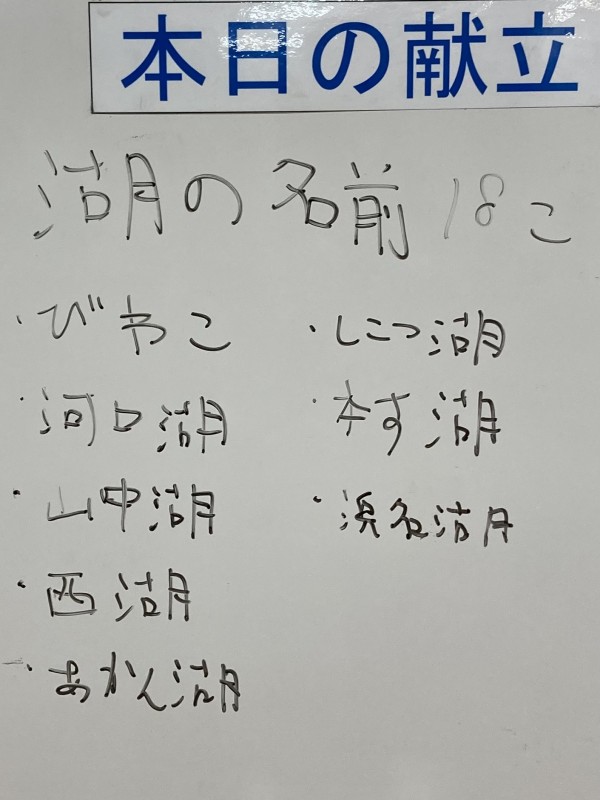 本日の献立
湖の名前 18こ
・びわこ
・河口湖
・山中湖
・西湖
・あかん湖
・しこつ湖
・本す湖
・浜名湖